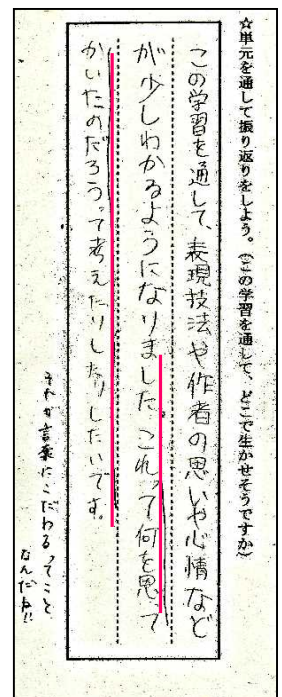 ☆単元を通して振り返りをしよう。(この学習を通して、どこで生かせそうですか)
この学習を通して、表現技法や作者の思いや心情など
が少しわかるようになりました。これって何を思って
かいたのだろうって考えたりしたりしたいです。
それが言葉にこだわるってこと
なんだね!!